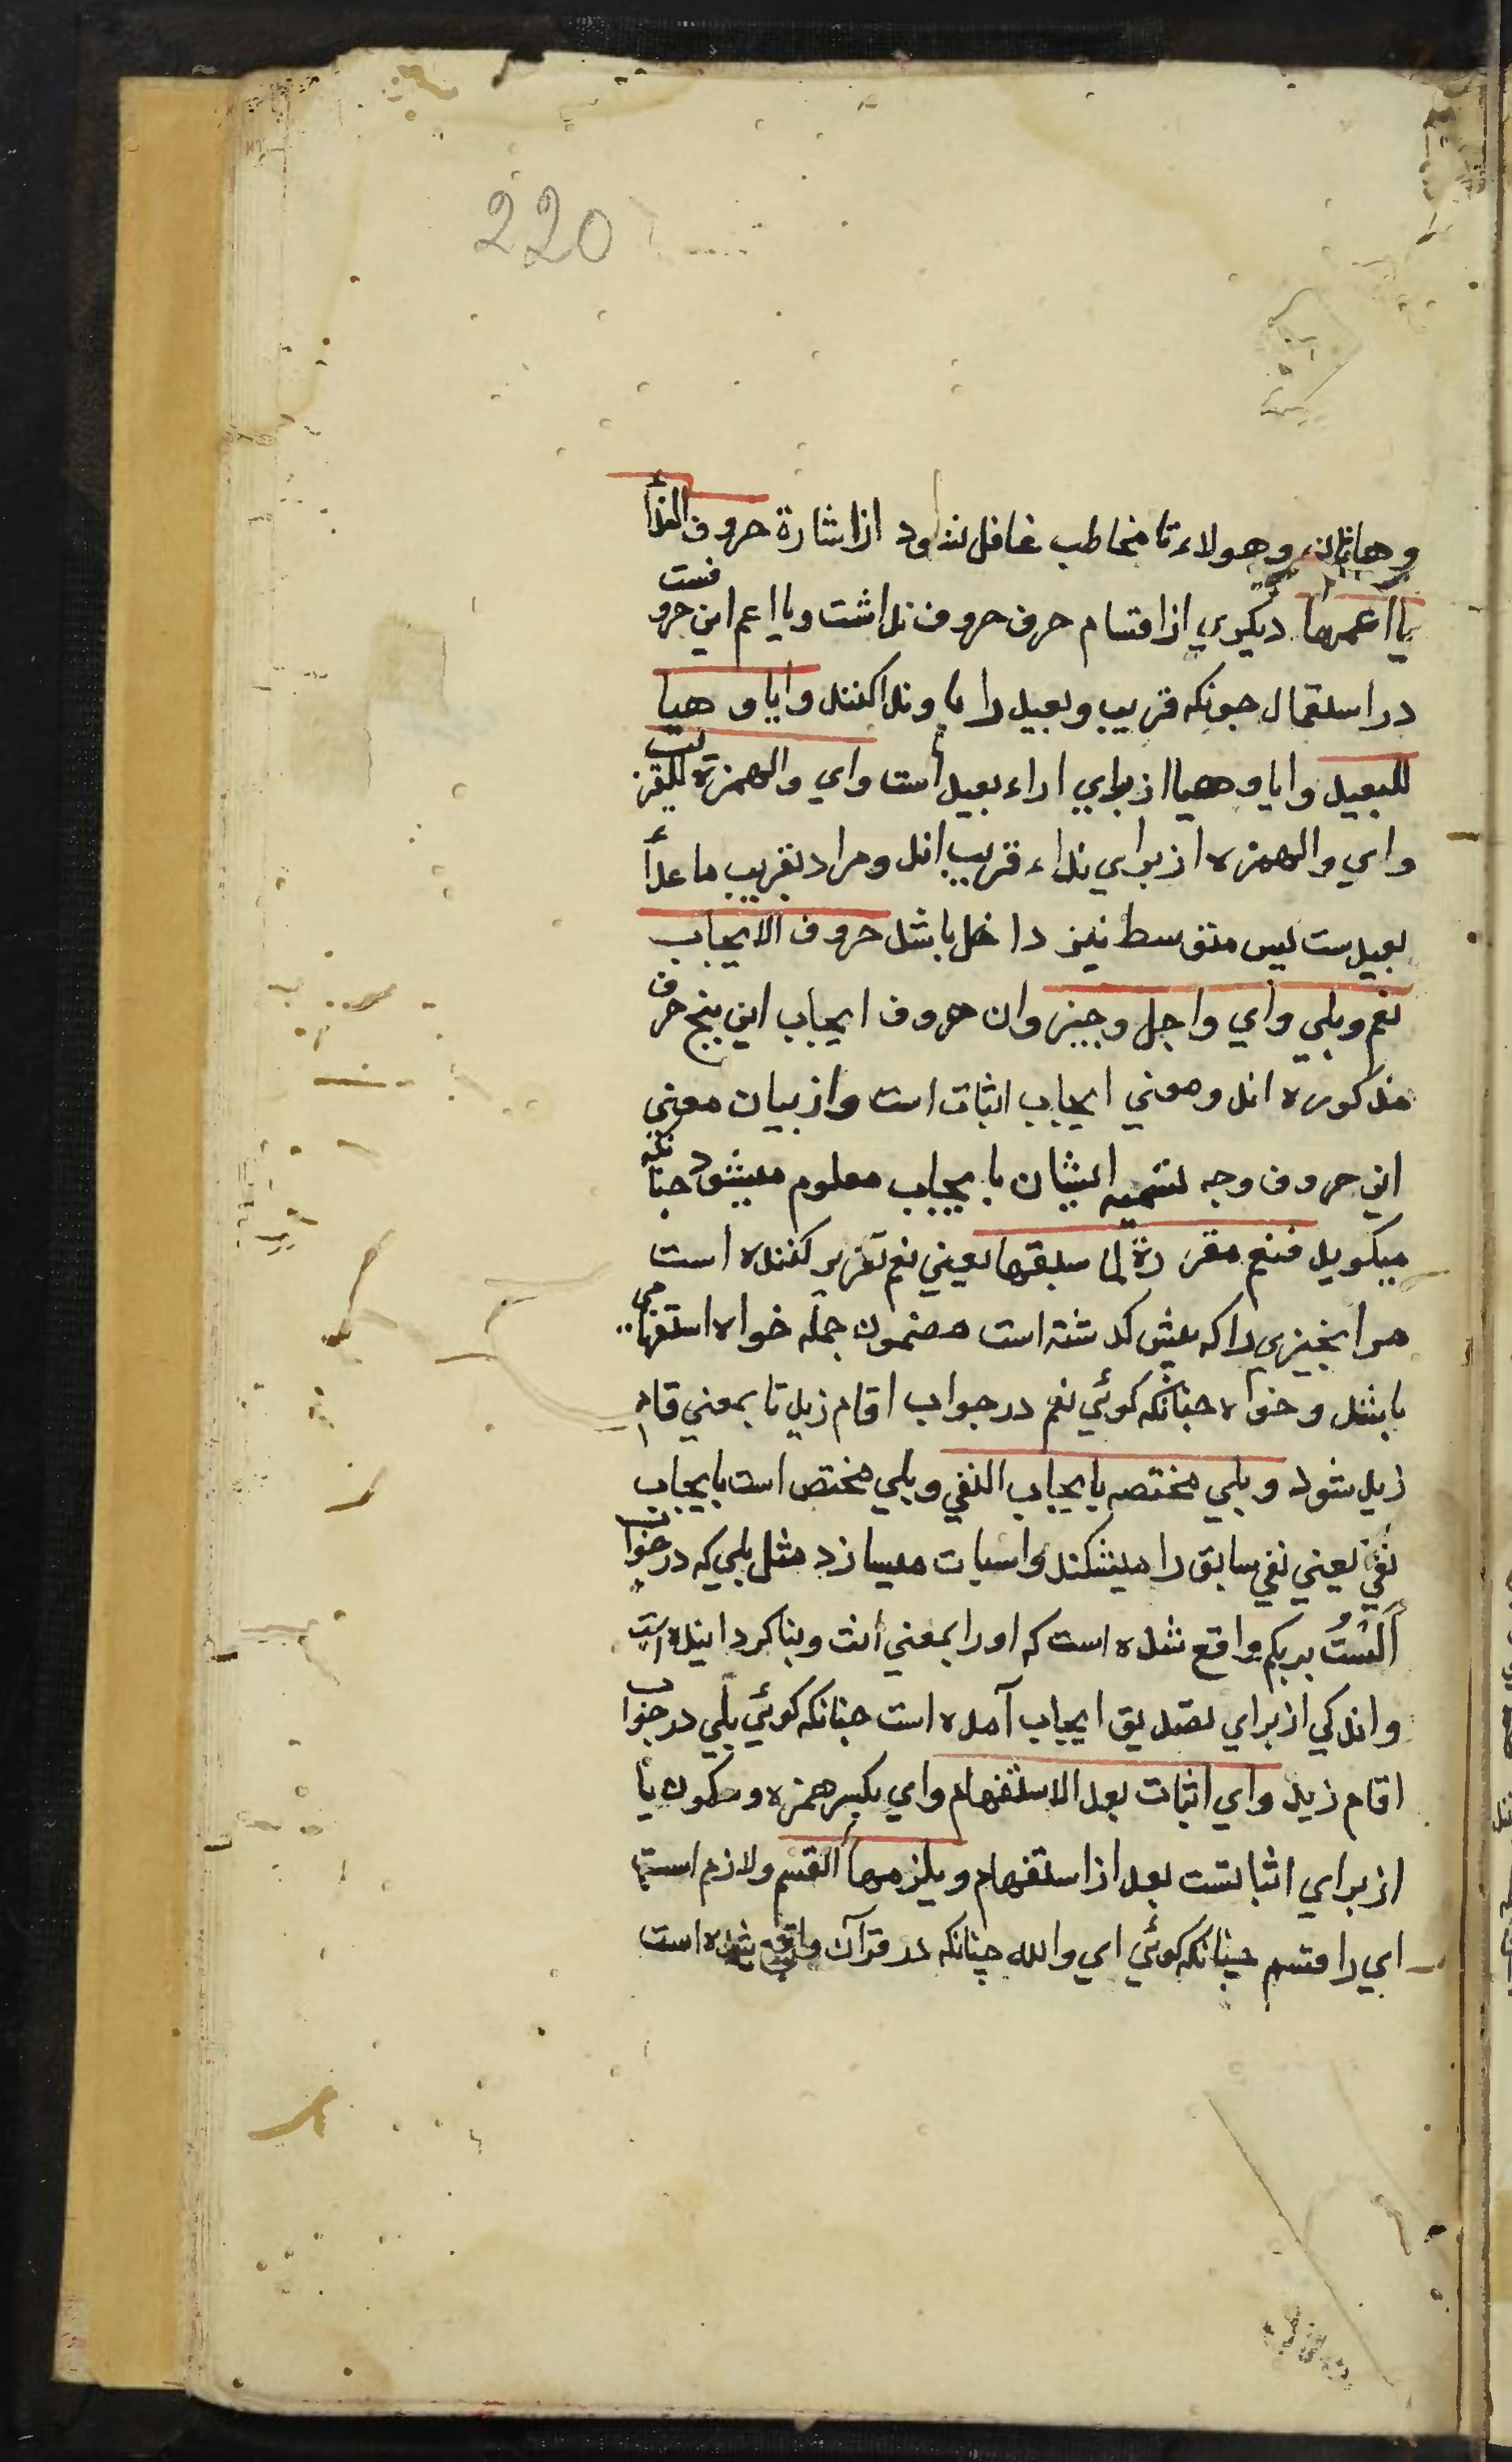 220
وهاتان وهولاء تا مخاطب غافل نشود از اشارة حروف الندأ
يا اعمها ديكري از اقسام حرف حروف نداشت ويا اعم اين حروفست
در استعمال جونكه قريب وبعيد را با و ندا كنند وايا و هيا
للبعيد وايا و هيا از براي اراء بعيد است واي والهمزه للقريب
واي والهمزه از براي نداء قريب اند ومراد بقريب ما عدأ
بعيدست پس متوسط نيز داخل باشد حروف الايجاب
نعم وبلي واي واجل وجير وان حروف ايجاب اين پنج حرف
مذكوره اند ومعني ايجاب اثبات است واز بيان معني
اين حروف وجه تسميه ايشان بايجاب معلوم ميشود جنانكه
ميكويد فنعم مقررة لما سبقها يعني نعم تقرير كننده است
مر انجيزي را كه پيش كدشته است مضمون جمله خواه استفهامي
باشد و خواه جنانكه كوئي نعم در جواب اقام زيد تا بمعني قام
زيد شود وبلي مختصه بايجاب النفي وبلي مختص است بايجاب
نفي يعني نفي سابق را ميشكند واسبات ميسازد مثل بلي كه در جواب
اَلَسْتُ بربكم واقع شده است كه اورا بمعني انت ربنا كردانيده است
واندكي از براي تصديق ايجاب آمده است جنانكه كوئي بلي در جواب
اقام زيد واي اثبات بعد الاستفهام واي بكسر همزه وسكون يا
از براي اثباتست بعد از استفهام ويلزمها القسم ولازم است
اي را قسم جنانكه كوئي اي والله چنانكه در قرآن واقع شده است